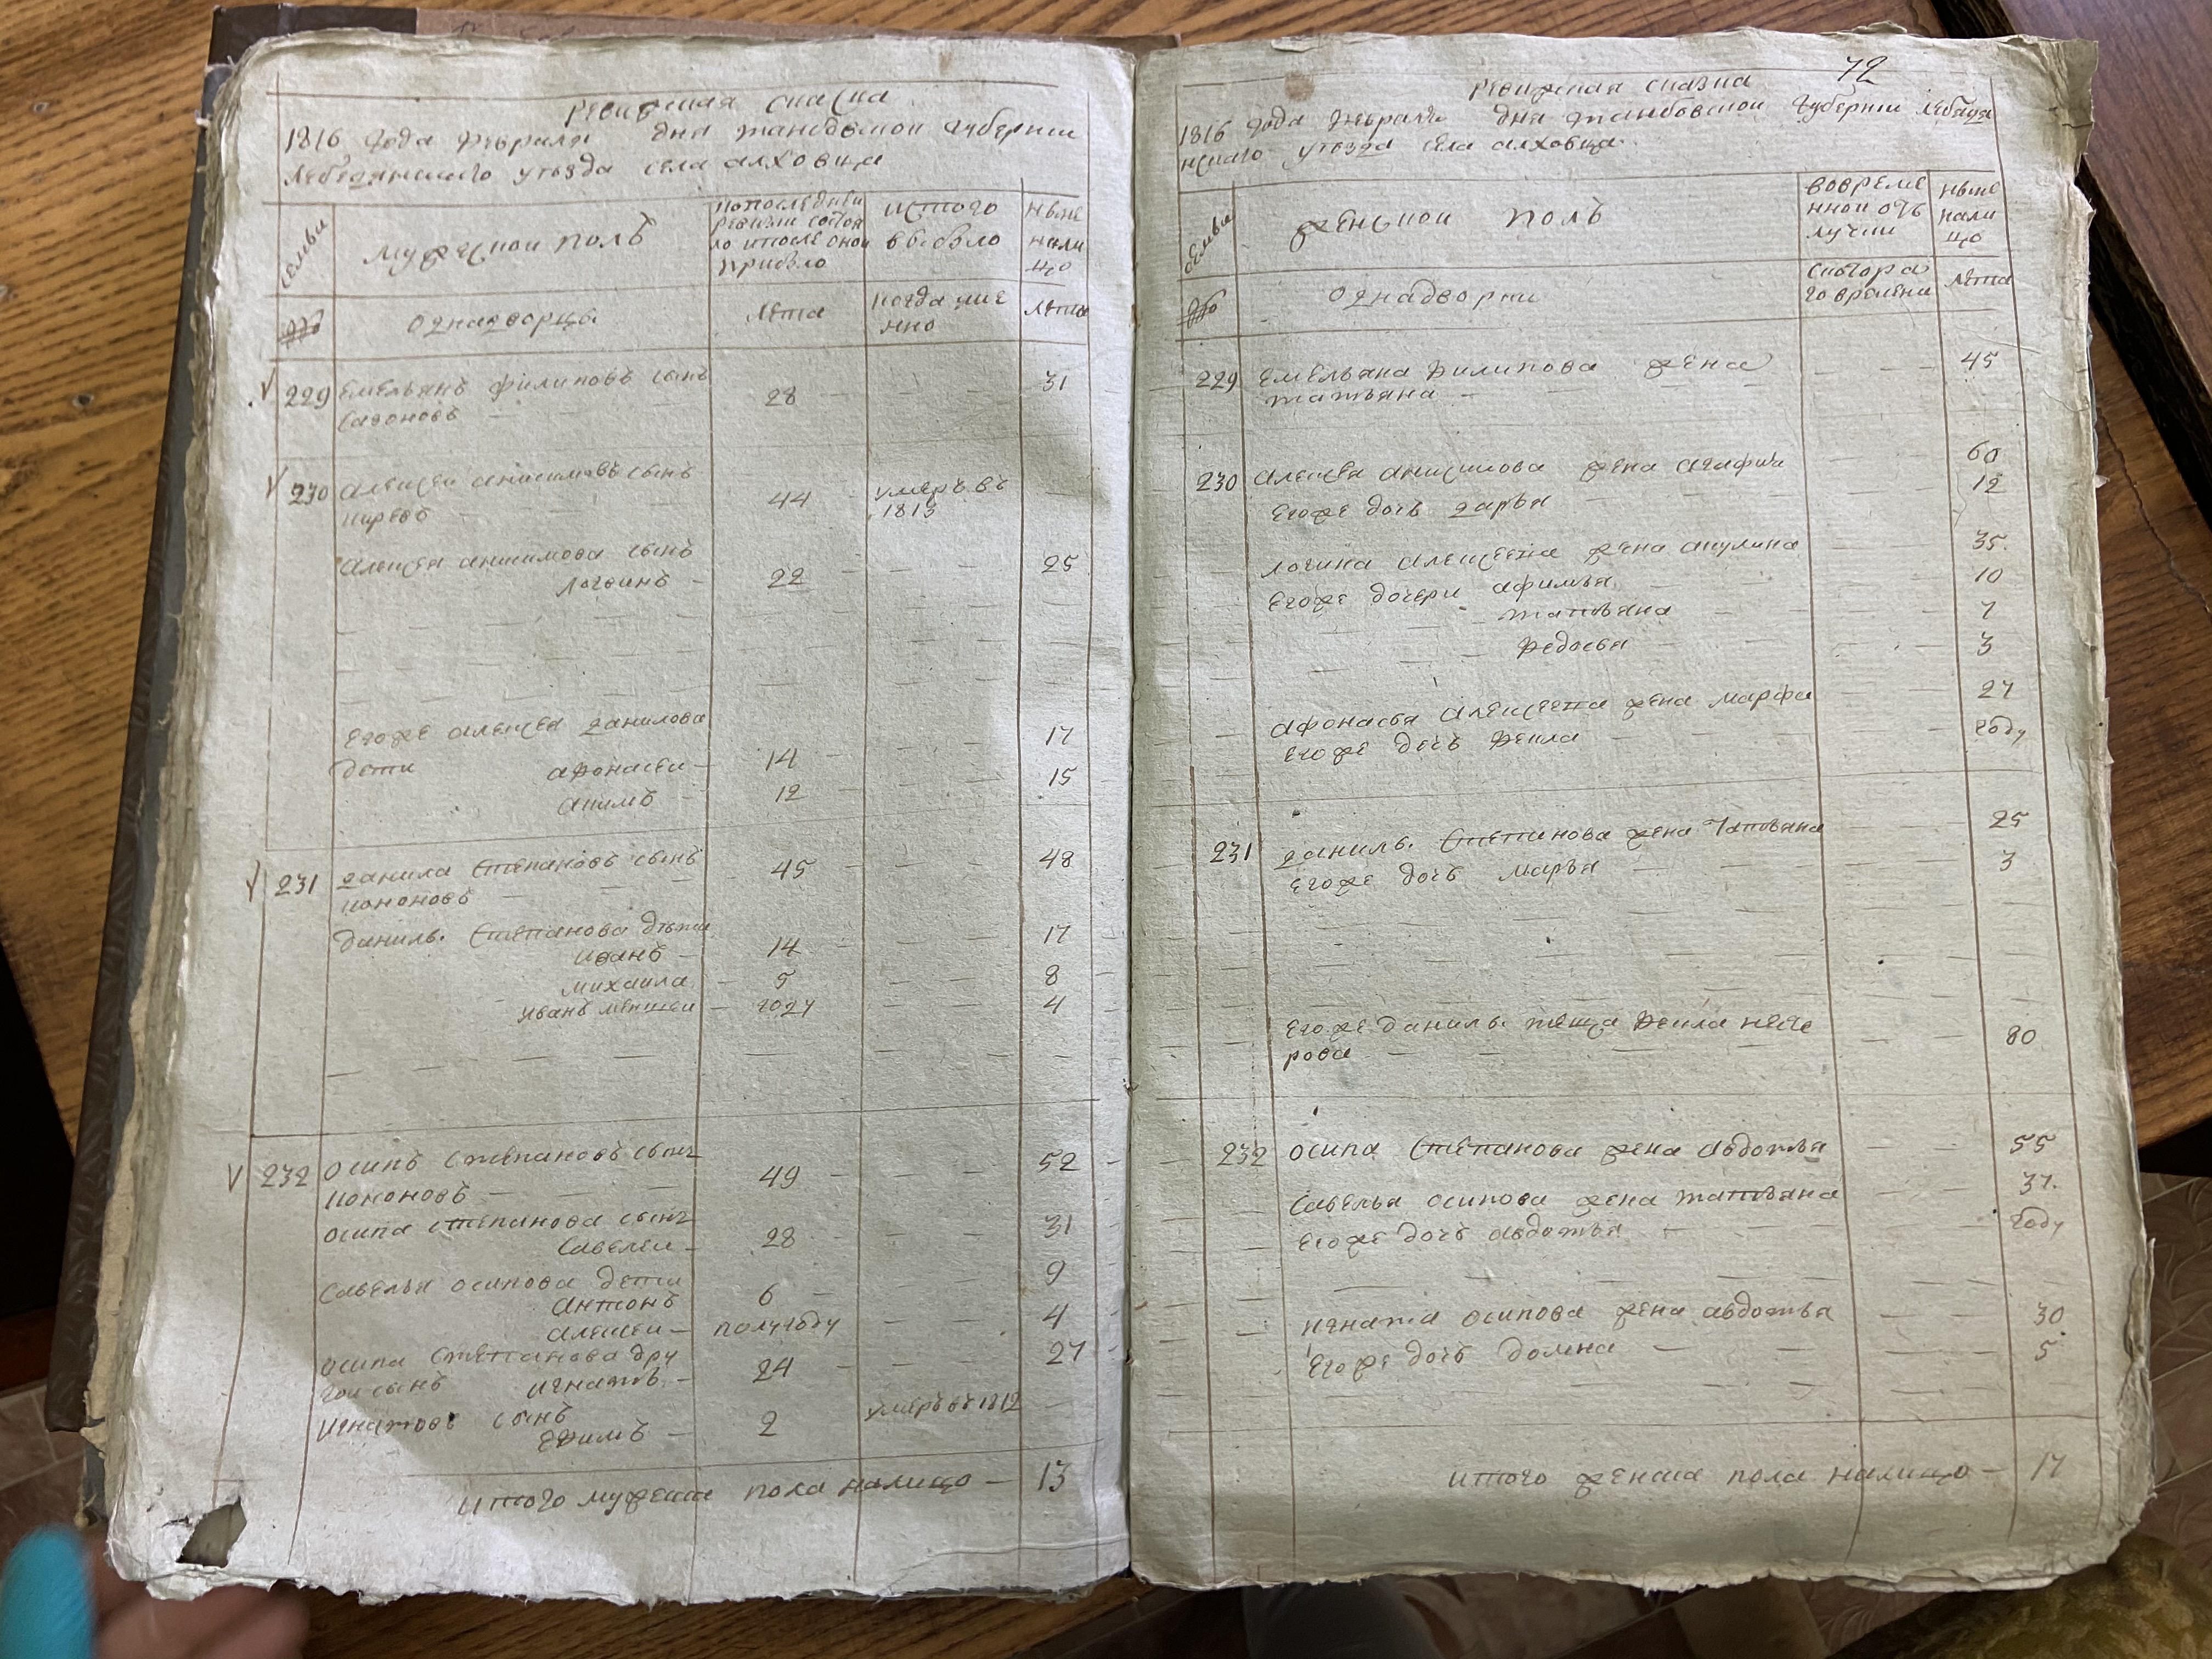 Ревиская скаска
1816 года февраля дня танбовской губернии
лебедянскаго уезда села алховца
семьи
мужескои полъ
попоследнеи
ревизи состоя
ло и после оной
прибыло
истого
выбыло
ныне
нали
цо
№
однодворцы
лета
когда имя
нно
лета
229 емельянъ филиповъ сынъ 28 31
сафоновъ
230 алексеи анисимовъ сынъ 44 умеръ въ
киревъ 1813
алексея анисимова сынъ
логвинъ 22 25
егоже алексея данилова
дети афонасеи 14 17
акимъ 12 15
231 данила степановъ сынъ 45 48
кононовъ
данилы степанова дети
иванъ 14 17
михаила 5 8
иванъ меншеи году 4
232 осипъ степановъ сынъ 49 52
кононовъ
осипа степанова сынъ
савелеи 28 31
савелья осипова дети
антонъ 6 9
алексеи полугоду 4
осипа степанова дру
гои сынъ игнатъ 24 27
игнатовъ сынъ
ефимъ 2 умеръ въ 1812
итого мужеска пола налицо 13
72
Ревиская сказка
1816 года февраля дня танбовскои губернии лебядя
нскаго уезда села алховца
семьи
женскои полъ
вовреме
ннои отъ
лучки
ныне
нали
цо
№
однадворки
скотора
го времени
лета
229 емельяна филипова жена 45
татьяна
230 алексея анисимова жена агафия 60
егоже дочь дарья 12
логина алексеева жена акулина 35
егоже дочери афимья 10
татьяна 7
федосья 3
афонасья алексеева жена марфа 27
егоже дочь фекла году
231 данилы степанова жена татьяна 25
егоже дочь марья 3
егоже данилы теща фекла несте
рова 80
232 осипа степанова жена авдотья 55
савелья осипова жена татьяна 37
егоже дочь авдотья году
игната осипова жена авдотья 30
егоже дочь домна 5
итого женска пола налицо 17